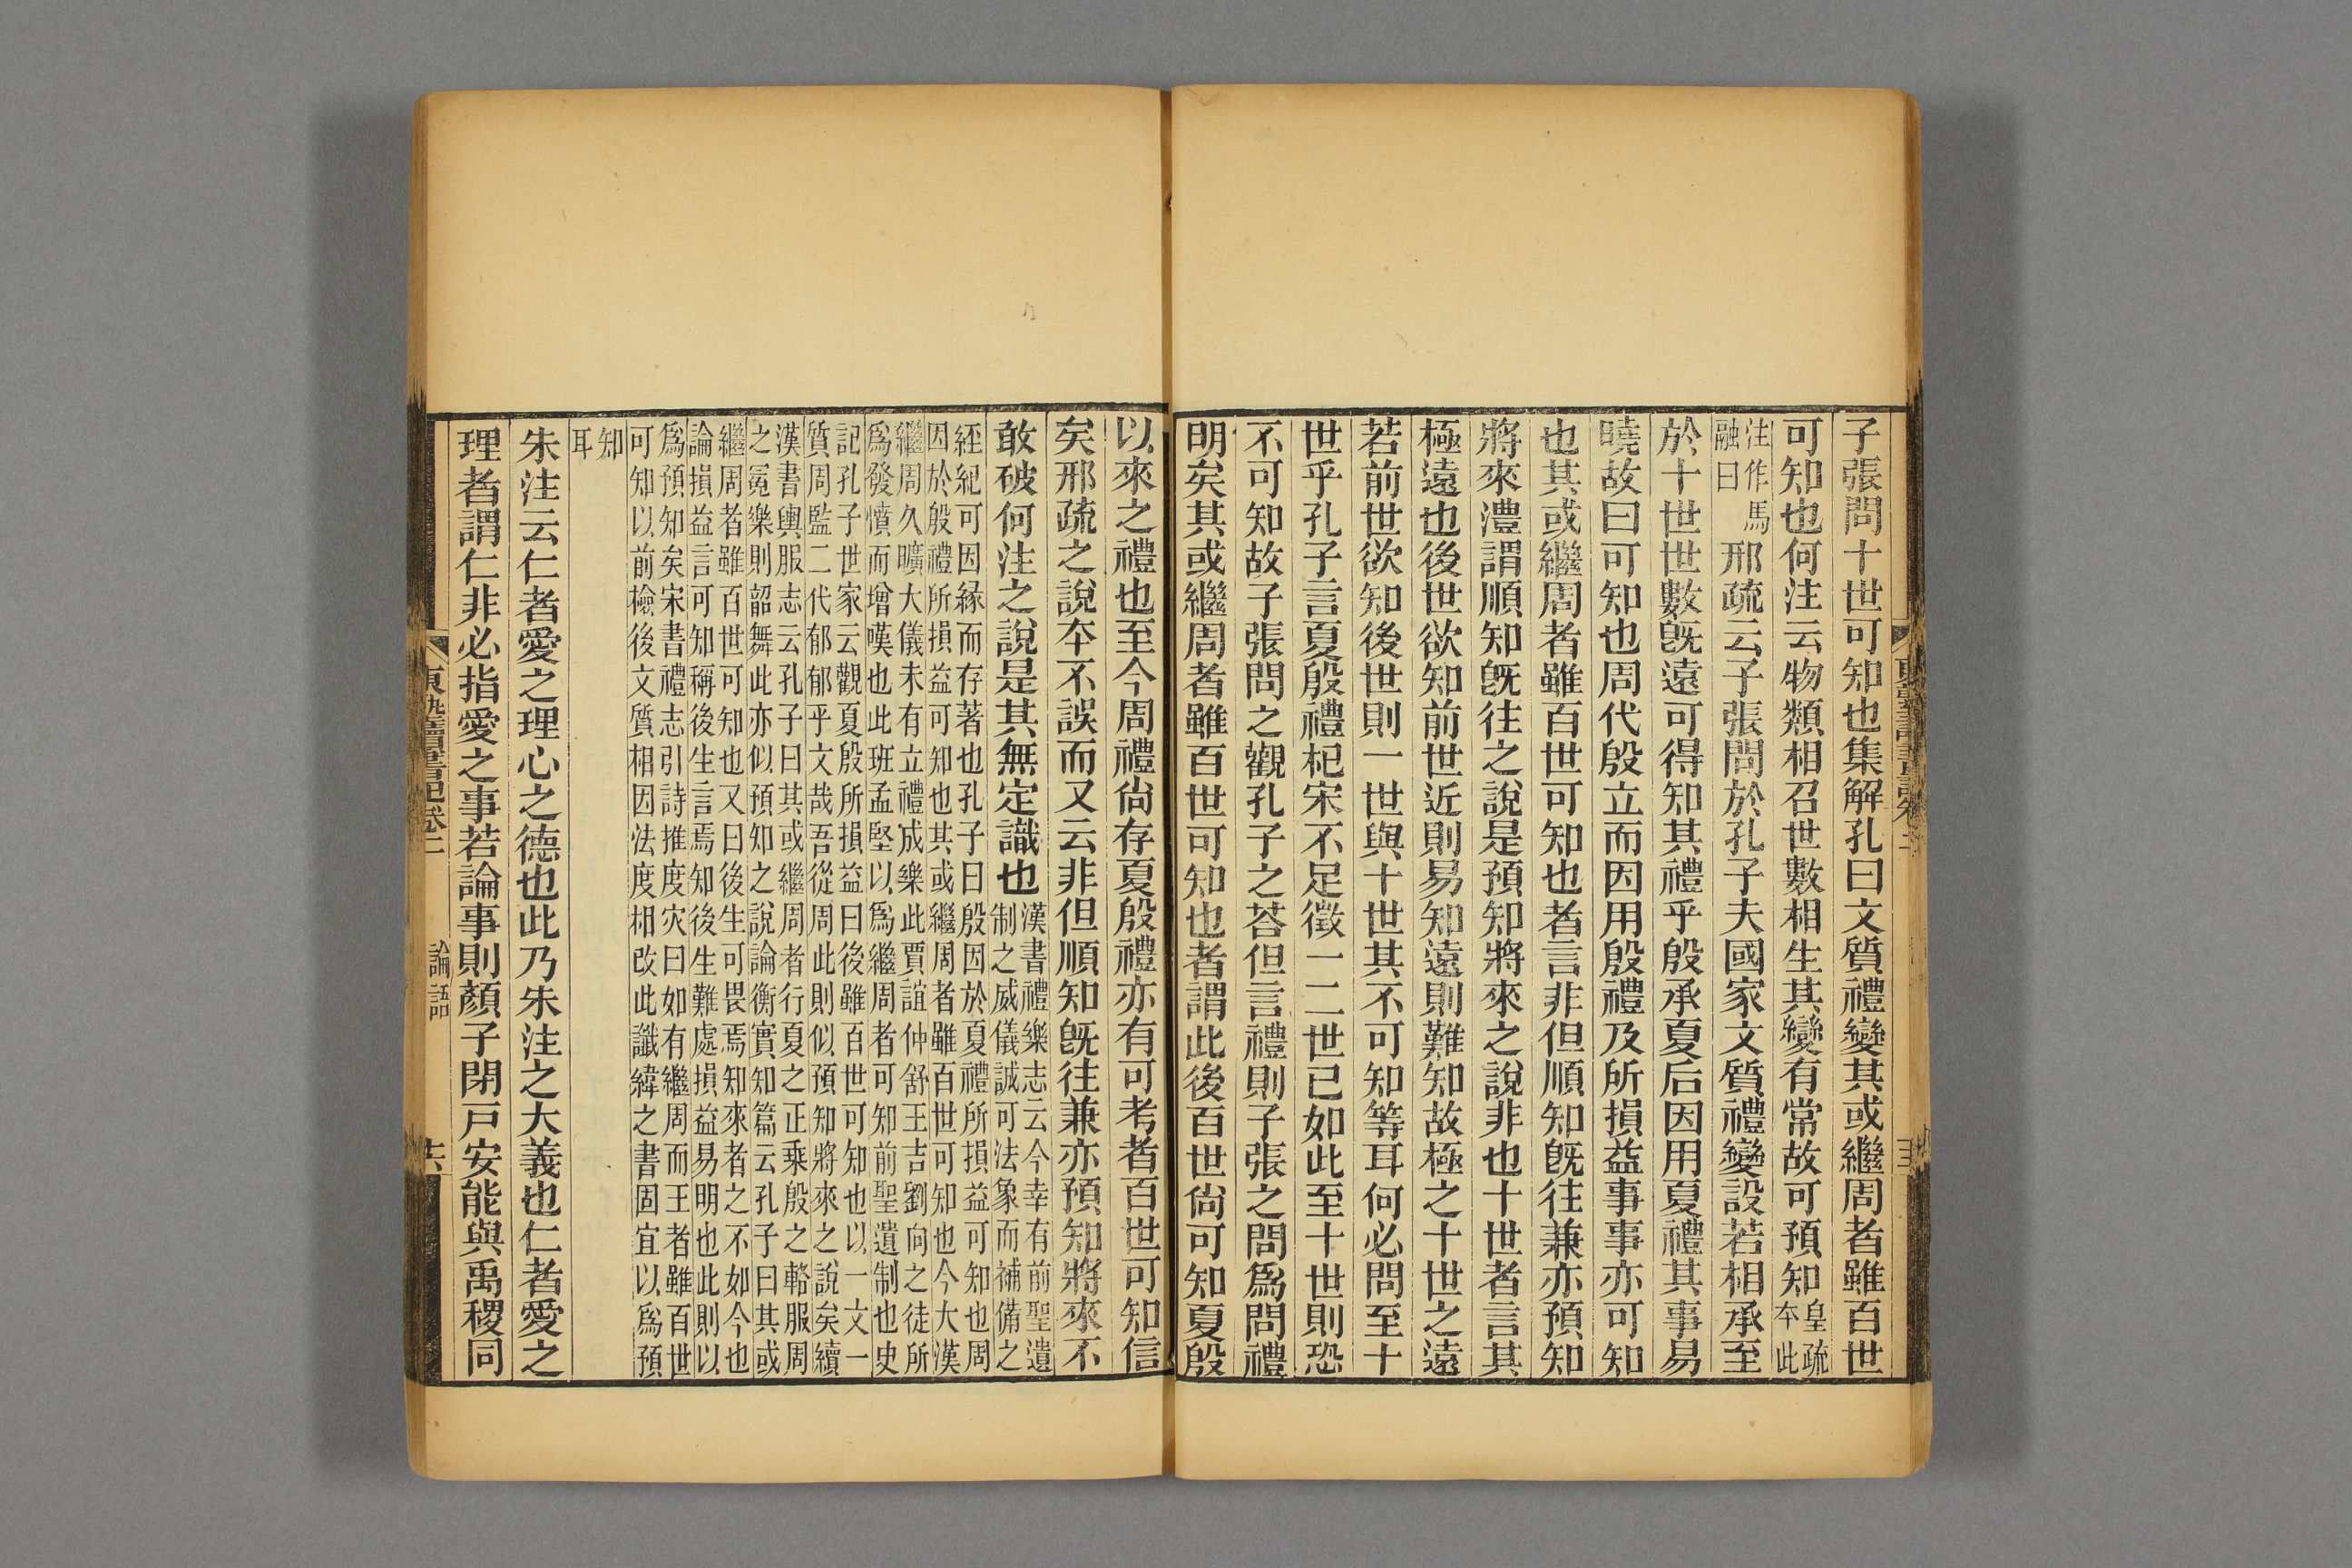 子張問十世可知也集解孔曰文質禮變其或繼周者雖百世
可知也何注云物類相召世數相生其變有常故可預知皇疏
本此
注作馬
融曰
邢疏云子張問於孔子夫國家文質禮變設若相承至
於十世世數既遠可得知其禮乎殷承夏后因用夏禮其事易
曉故曰可知也周代殷立而因用殷禮及所損益事事亦可知
也其或繼周者雖百世可知也者言非但順知既往兼亦預知
將來澧謂順知既往之說是預知將來之說非也十世者言其
極遠也後世欲知前世近則易知遠則難知故極之十世之遠
若前世欲知後世則一世與十世其不可知等耳何必問至十
世乎孔子言夏殷禮杞宋不足徵一二世已如此至十世則恐
不可知故子張問之觀孔子之荅但言禮則子張之問爲問禮
明矣其或繼周者雖百世可知也者謂此後百世尙可知夏殷
以來之禮也至今周禮尙存夏殷禮亦有可考者百世可知信
矣邢疏之說本不誤而又云非但順知既往兼亦預知將來不
敢破何注之說是其無定識也
漢書禮樂志云今幸有前聖遺
制之威儀誠可法象而補備之
經紀可因緣而存著也孔子曰殷因於夏禮所損益可知也周
因於殷禮所損益可知也其或繼周者雖百世可知也今大漢
繼周久曠大儀未有立禮成樂此賈誼仲舒王吉劉向之徒所
爲發憤而增嘆也此班孟堅以爲繼周者可知前聖遺制也史
記孔子世家云觀夏殷所損益曰後雖百世可知也以一文一
質周監二代郁郁乎文哉吾從周此則似預知將來之說矣續
漢書輿服志云孔子曰其或繼周者行夏之正乘殷之輅服周
之冕樂則韶舞此亦似預知之說論衡實知篇云孔子曰其或
繼周者雖百世可知也又曰後生可畏焉知來者之不如今也
論損益言可知稱後生言焉知後生難處損益易明也此則以
爲預知矣宋書禮志引詩推度災曰如有繼周而王者雖百世
可知以前檢後文質相因法度相改此讖緯之書固宜以爲預
知
耳
朱注云仁者愛之理心之德也此乃朱注之大義也仁者愛之
理者謂仁非必指愛之事若論事則顏子閉戸安能與禹稷同
東塾讀書記卷二
論語
十六